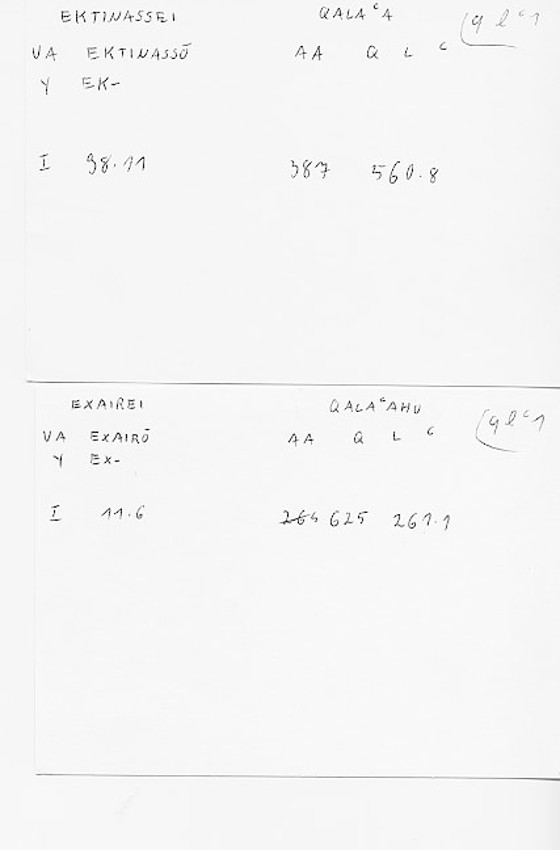 EKTINASSEI QALAᶜA (q l ᶜ 1
VA EKTINASSŌ AA Q L ᶜ
Y EK-
I 98.11 387 560.8
EXAIREI QALAᶜAHU (q l ᶜ 1
VA EXAIRŌ AA Q L ᶜ
Y EX-
I 11.6 625 261.1